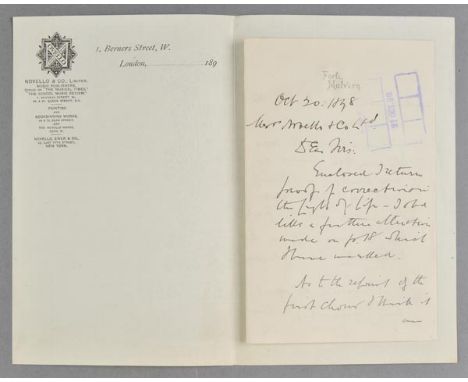 NOVELLO & CO., LIMITED,
MUSIC PUBLISHERS,
OFFICE OF "THE MUSICAL TIMES,"
"THE SCHOOL MUSIC REVIEW,"
PRINTING
AND
BOOKBINDING WORKS,
NOVELLO, EWER & CO.,
NEW YORK.
1, Berners Street, W.
London, 189
Forli,
Malvern
Oct 20. 1898
Messrs Novello & Co Ltd
Dear Sirs.
Enclosed I return
proof of corrections in
the Light of Life – I
a further alteration
made on fo 18 which
I have marked.
As to the reprint of the
first Chorus I think it